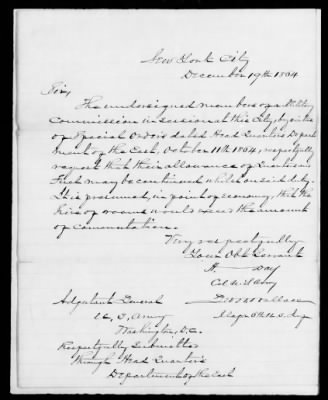 New York City
December 19th 1864
Sir,
The undersigned members of a Military
Commission in session at this City, by virtue
of Special Orders dated Head Quarters Depart
ment of the East, October 11th 1864, respectfully
request that their allowance of Quarters &
Fuel may be continued while on said duty.
It is presumed, in point of economy, that the
hire of rooms would exceed the amount
of commutation.
Very respectfully
Your Obt Servant
H. Day
Col U.S. Army
Wallace
Major 6th U.S. Inf
Adjutant General
U.S. Army
Washington, D.C.
Respectfully Submitted
through Head Quarters
Department of the East